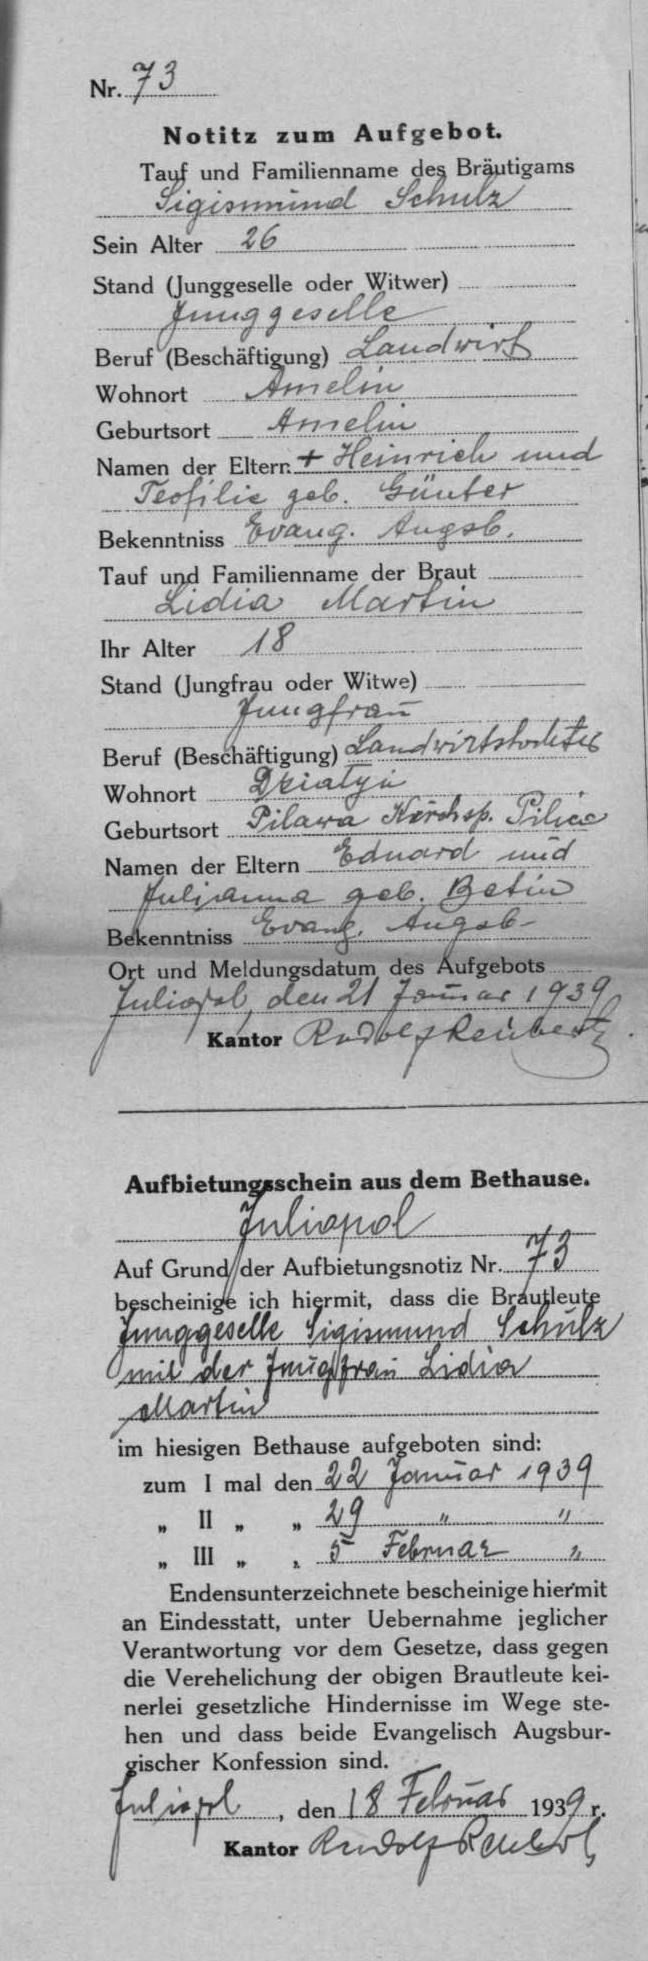 Nr. 73
Notitz zum Aufgebot.
Tauf und Familienname des Bräutigams
Sigismund Schulz
Sein Alter 26
Stand (Junggeselle oder Witwer)
Junggeselle
Beruf (Beschäftigung) Landwirt
Wohnort Amelin
Geburtsort Amelin
Namen der Eltern + Heinrich und
Teofilie geb. Günter
Bekenntniss Evang. Augsb.
Tauf und Familienname der Braut
Lidia Martin
Ihr Alter 18
Stand (Jungfrau oder Witwe)
Jungfrau
Beruf (Beschäftigung) Landwirtstochter
Wohnort
Geburtsort Pilawa Kirchsp. Pilica
Namen der Eltern Eduard und
Julianna geb.
Bekenntniss Evang. Augsb-
Ort und Meldungsdatum des Aufgebots
Juliopol, den 21 Januar 1939
Kantor Rudolf
Aufbietungsschein aus dem Bethause.
Juliopol
Auf Grund der Aufbietungsnotiz Nr. 73
bescheinige ich hiermit, dass die Brautleute
Junggeselle Sigismund Schulz
mit der Jungfrau Lidia
Martin
im hiesigen Bethause aufgeboten sind:
zum I mal den 22 Januar 1939
„ II „ „ 29 " "
„ III „ „ 5 Februar "
Endensunterzeichnete bescheinige hiermit
an Eindesstatt, unter Uebernahme jeglicher
Verantwortung vor dem Gesetze, dass gegen
die Verehelichung der obigen Brautleute kei-
nerlei gesetzliche Hindernisse im Wege ste-
hen und dass beide Evangelisch Augsbur-
gischer Konfession sind.
Juliopol, den 18 Februar 1939 r.
Kantor Rudolf